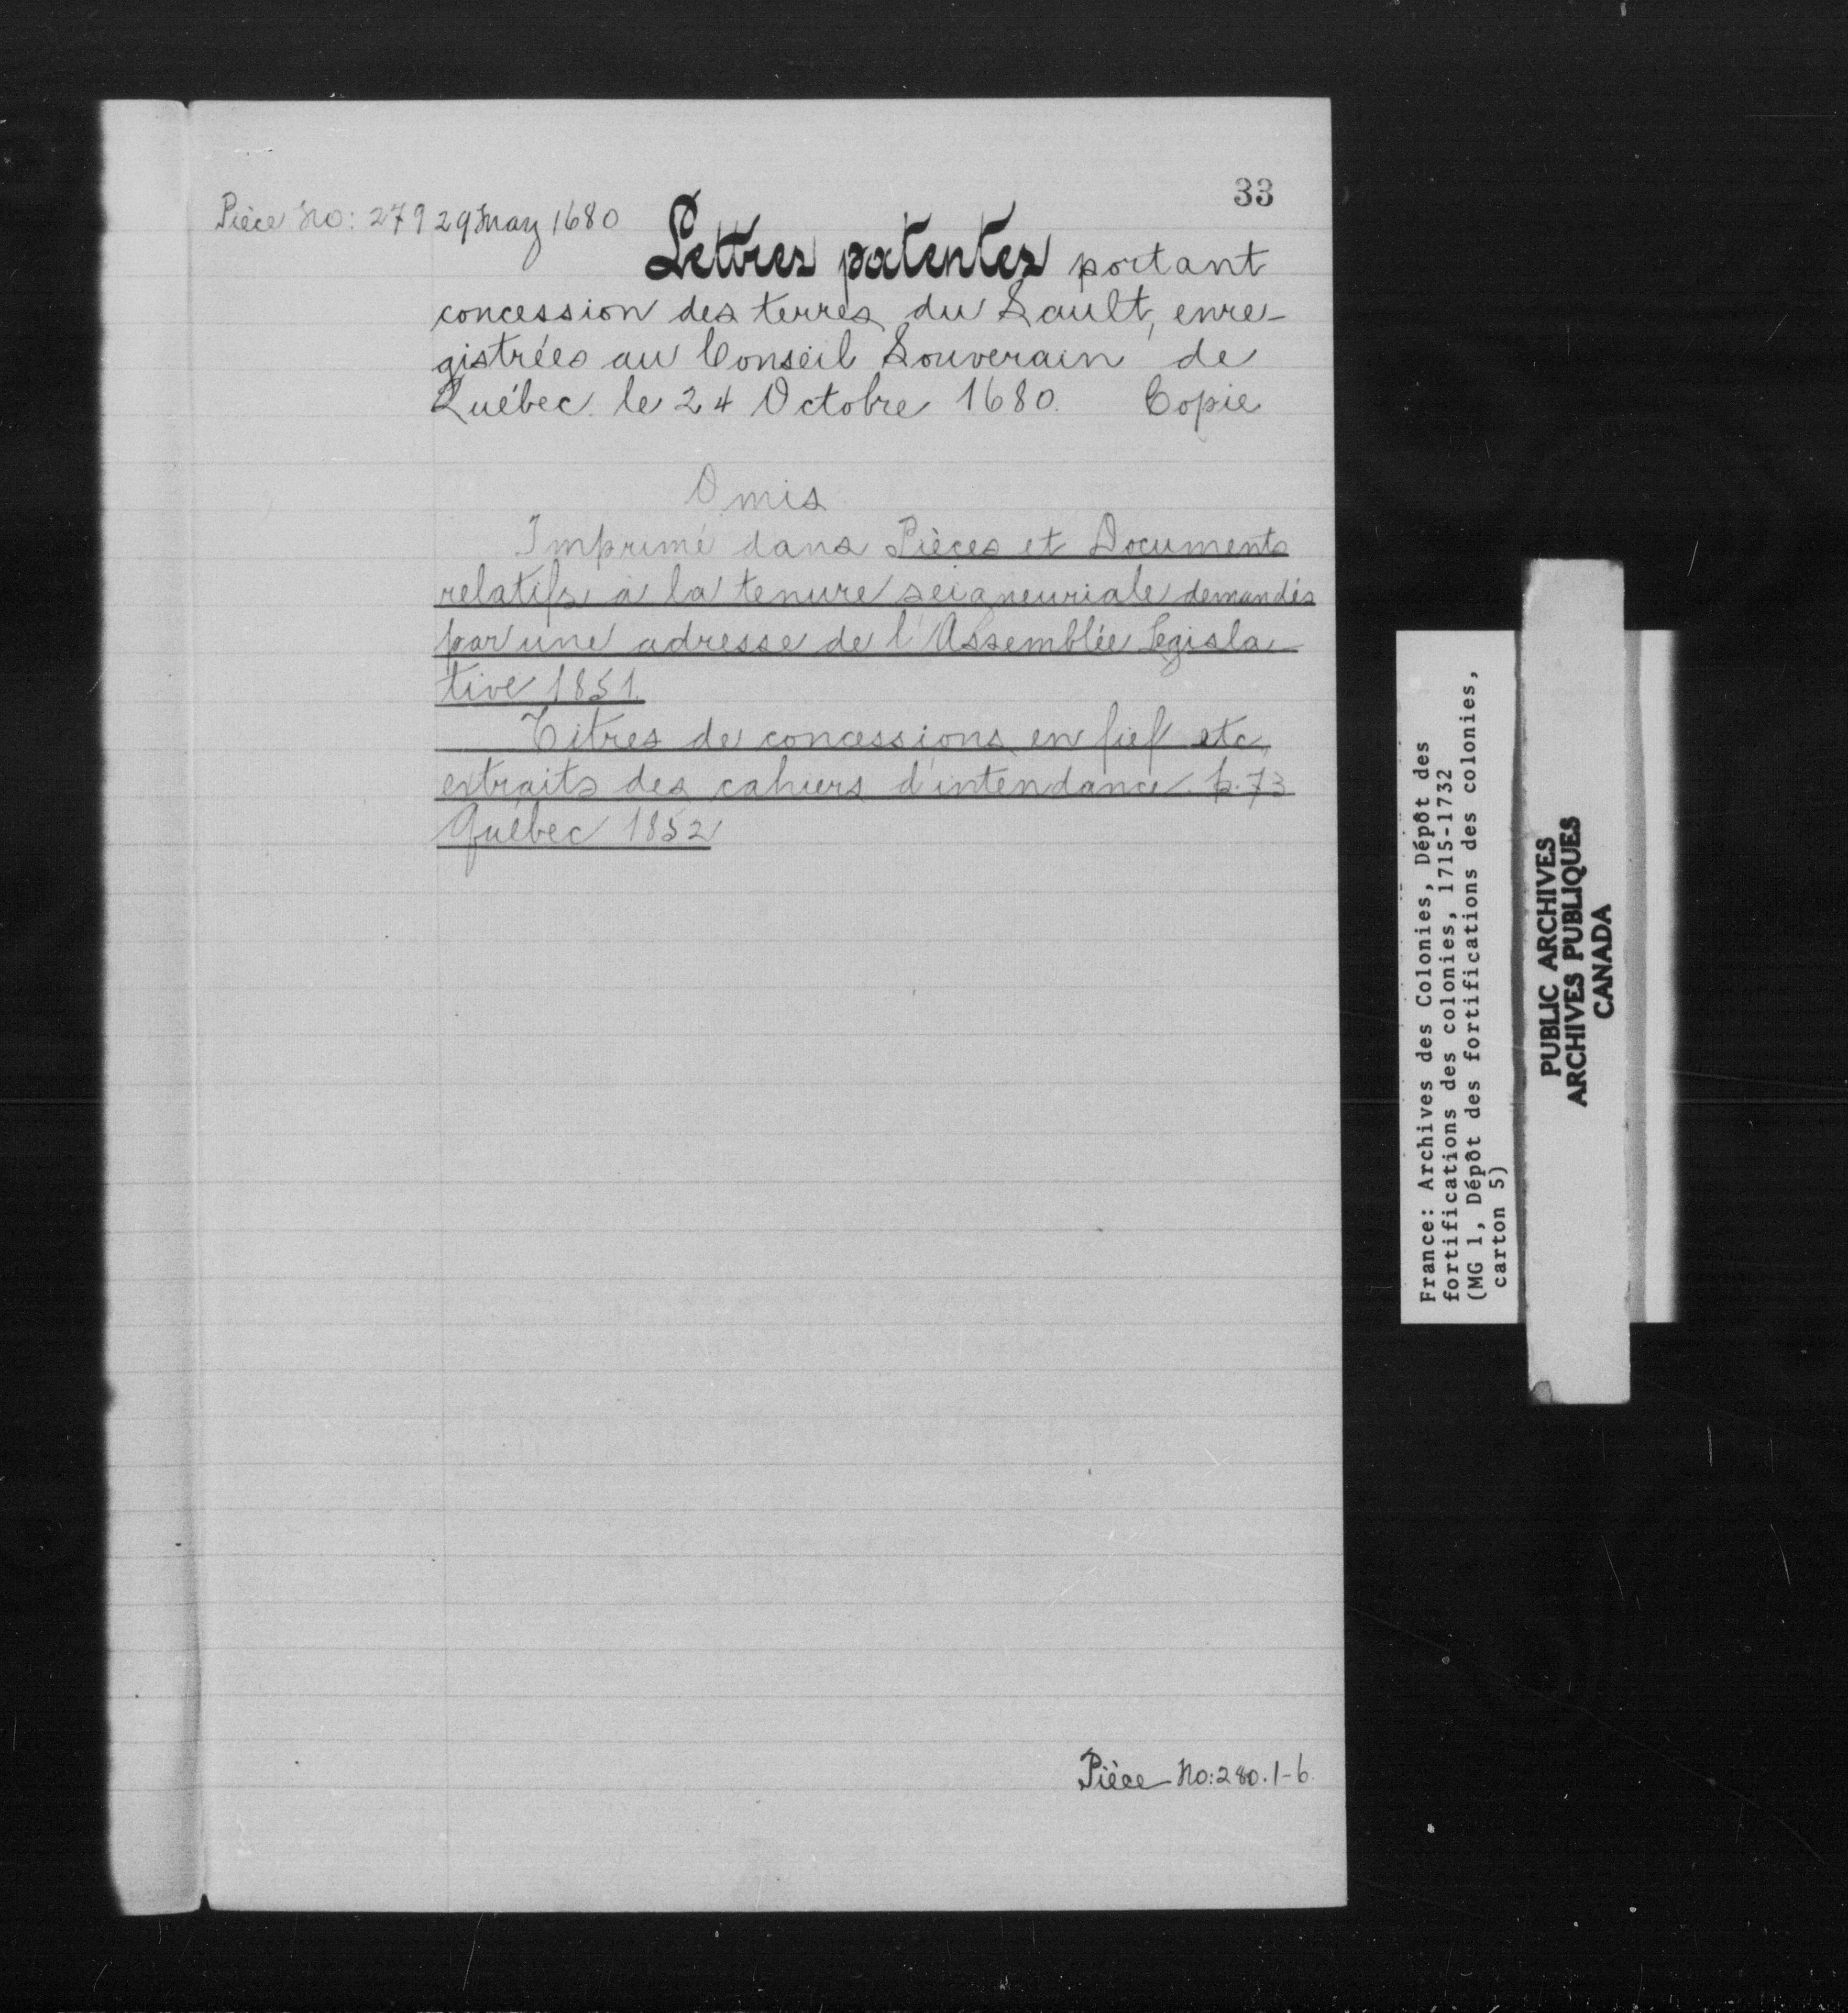 33
Pièce No: 279 29 May 1680
Lettres patentes portant
concession des terres du Sault, enre-
gistrées au Conseil Souverain de
Québec le 24 Octobre 1680. Copie
Omis
Imprimé dans Pièces et Documents
relatifs à la tenure seigneuriale demandés
par une adresse de l'Assemblée Législa-
tive 1851.
Titres de concessions en fief etc,
extraits des cahiers d'intendance p. 73
Québec 1852
Pièce No: 280. 1-6.
France: Archives des Colonies, Dépôt des
fortifications des colonies, 1715-1732
(MG 1, Dépôt des fortifications des colonies,
carton 5)
PUBLIC ARCHIVES
ARCHIVES PUBLIQUES
CANADA